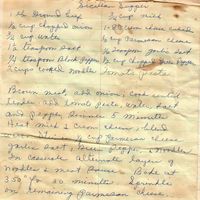 Sicilian Supper
1 lb Ground Beef
1/2 cup chopped onion
3/4 cup water
1 1/2 teaspoon Salt
1/4 teaspoon Black Pepper
cups cooked noodles
2/3 cup milk
1-8oz cream cheese
1/2 cup Parmesan cheese
1/2 teaspoon garlic salt
1/2 cup chopped Green Pepper
Tomato Paste
Brown meat, add onions; Cook until
tender add tomato paste, water, salt
and pepper, Simmer 5 minutes.
Heat milk & cream cheese; blend
Parmesan cheese
garlic salt, Green Pepper, & noodles
In casserole alternate layers of
noodles & meat sauce. Bake at
350° for 20 minutes Sprinkle
on remaining Parmesan cheese